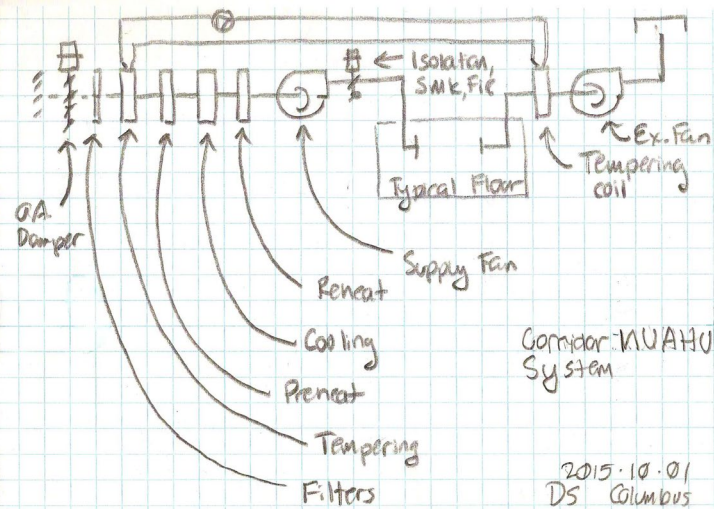 Isolatan,
Smk, Fie
Ex. Fan
Tempering
coil
Typical Floor
O.A.
Damper
Supply Fan
Reheat
Cooling
Preheat
Tempering
Filters
Corridor MUAHU
System
2015.10.01
DS Columbus